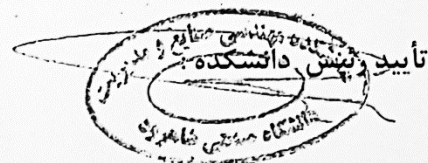 تأیید رئیس دانشکده :
دانشکده مهندسی صنایع و مدیریت
دانشگاه صنعتی شاهرود